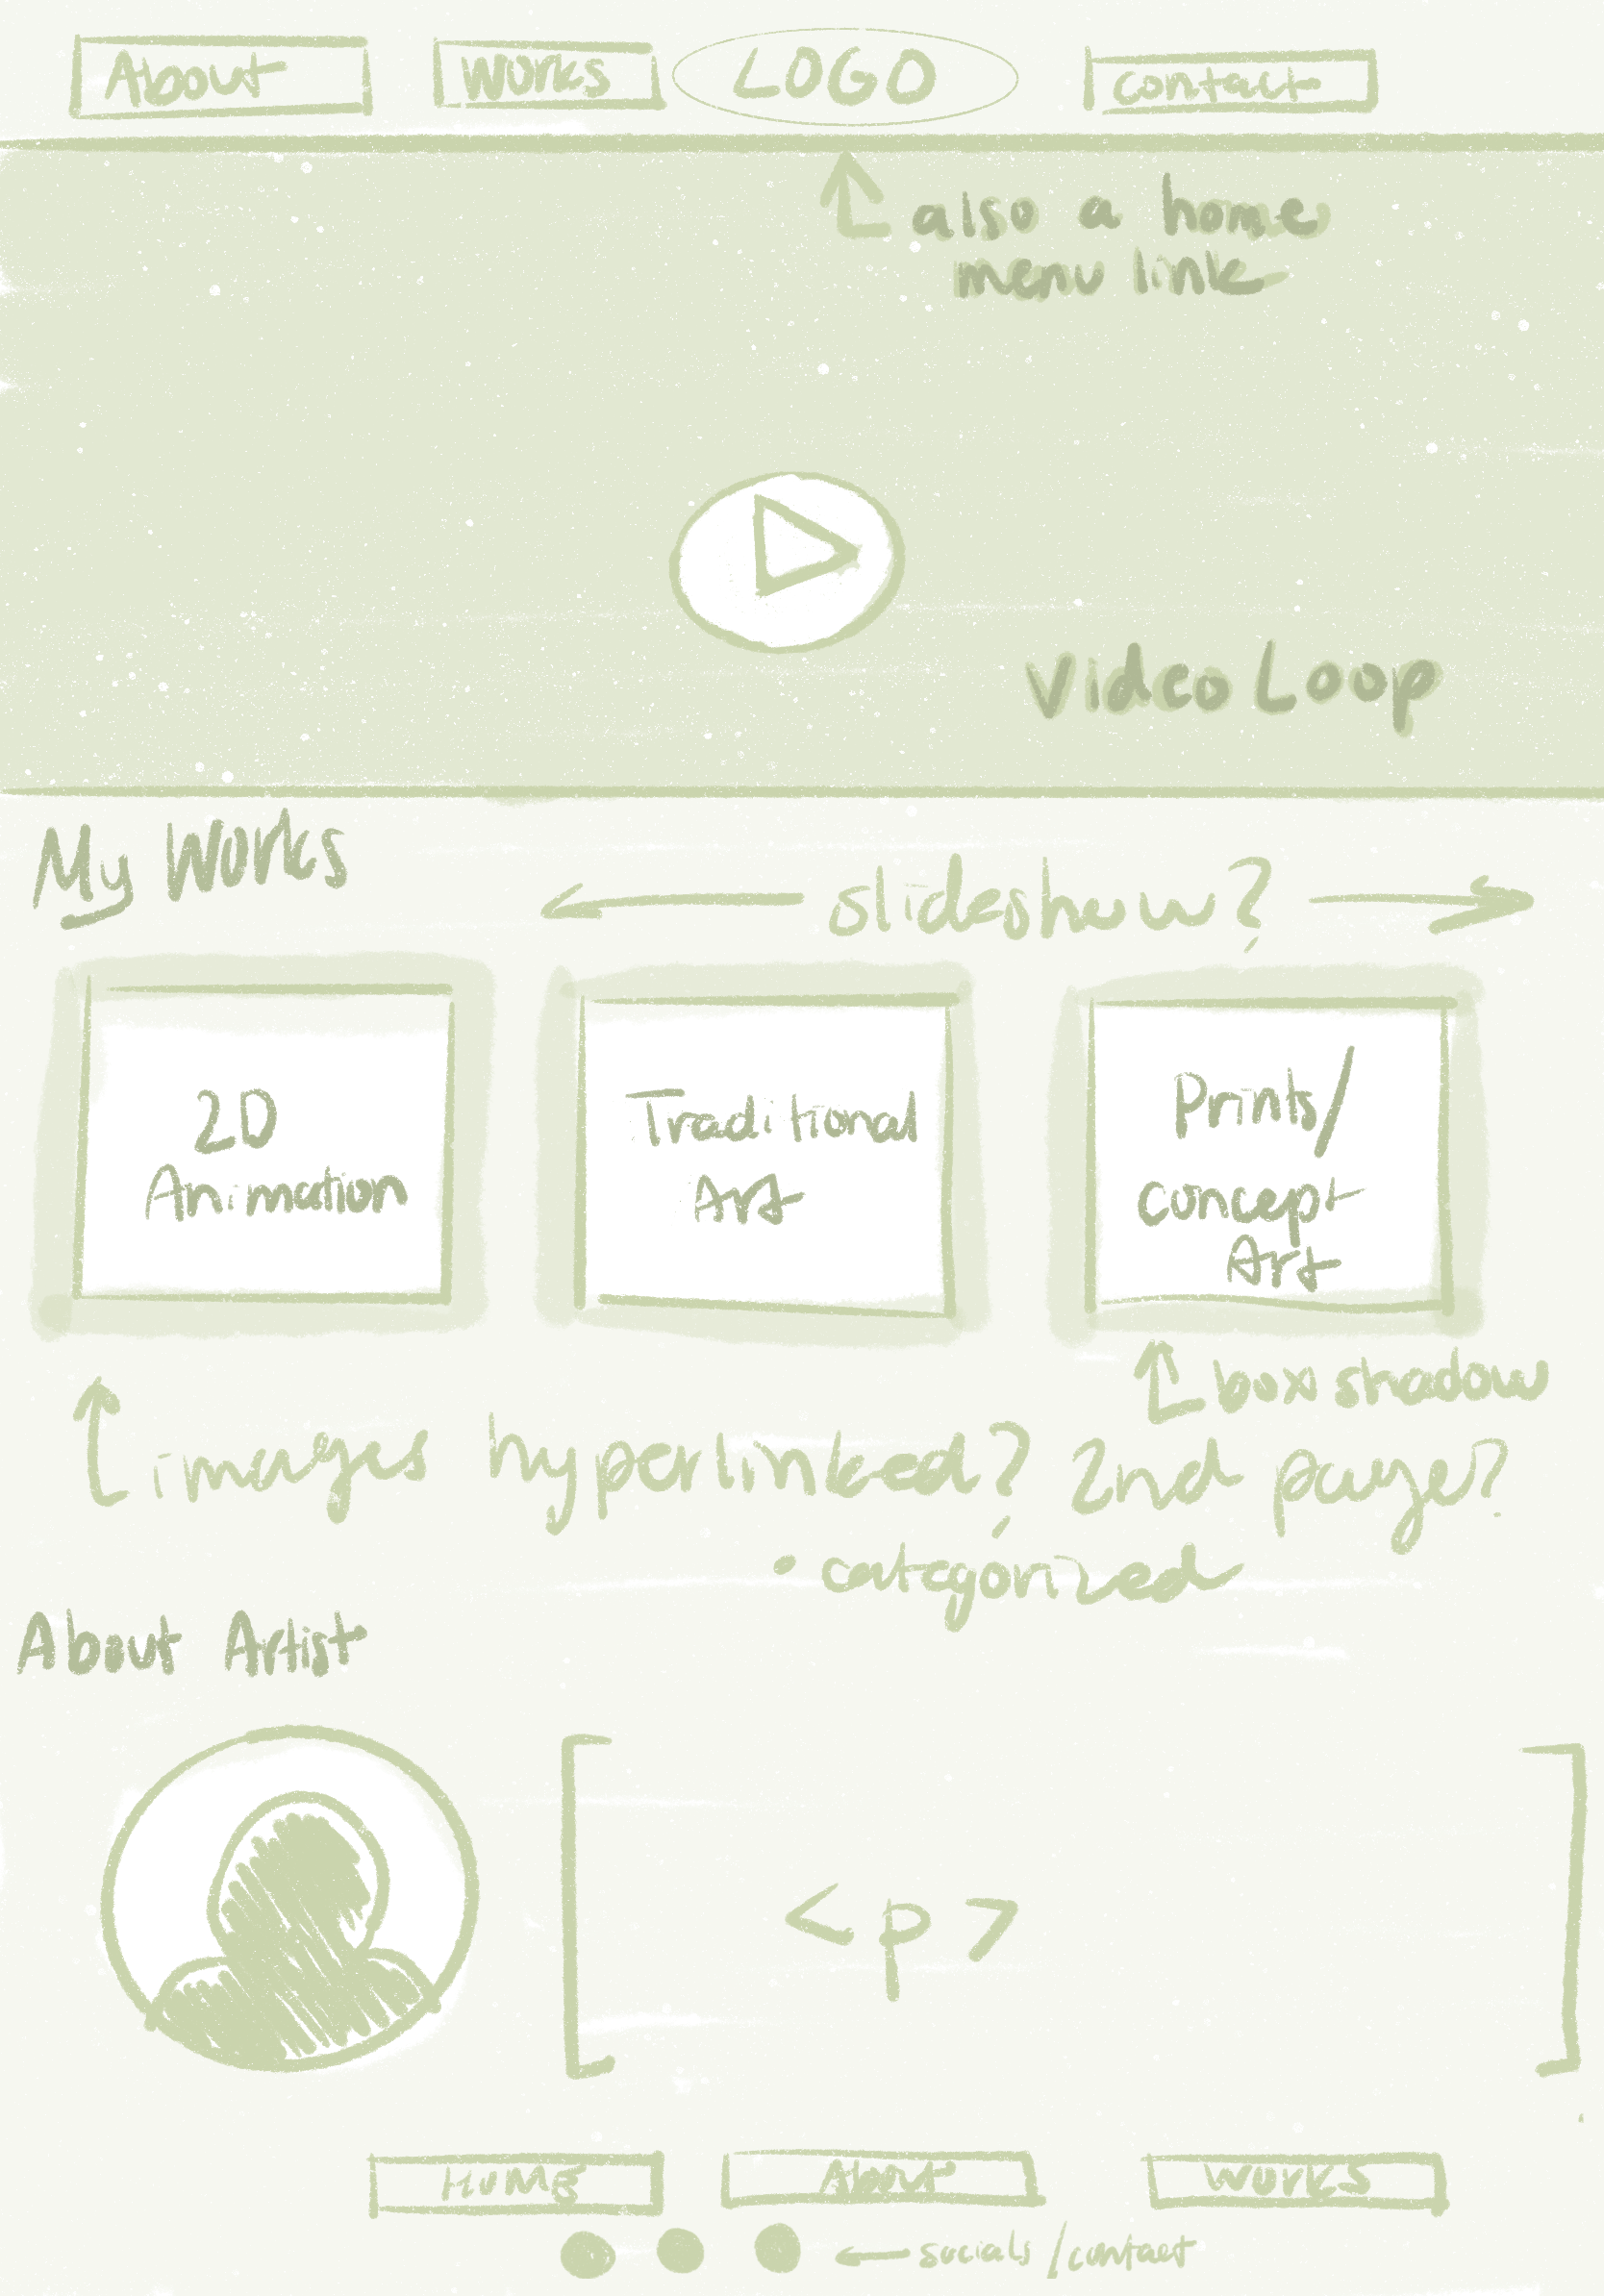 About
Works
LOGO
contact
also a home
menu link
Video Loop
My Works
slideshow?
2D
Animation
Traditional
Art
Prints/
concept
Art
box shadow
images hyperlinked? 2nd page?
• categorized
About Artist
<p>
HOME
About
WORKS
socials/contact